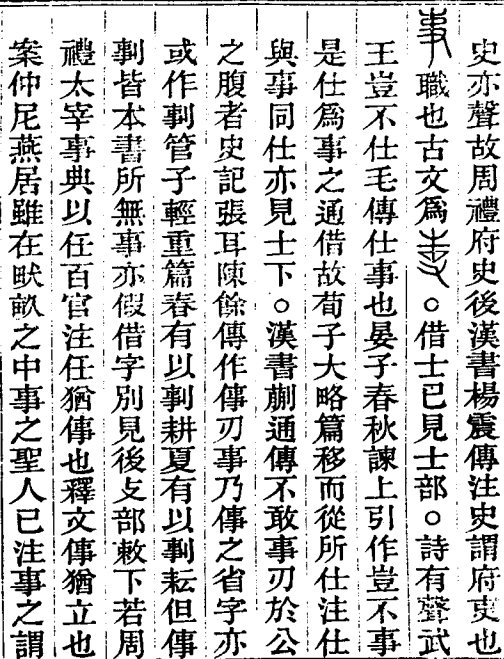 史亦聲故周禮府史後漢書楊震傳注史謂府吏也
事職也古文爲。借士已見士部。詩有聲武
王豈不仕毛傳仕事也晏子春秋諫上引作豈不事
是仕爲事之通借故荀子大略篇移而從所仕注仕
與事同仕亦見士下。漢書蒯通傳不敢事刃於公
之腹者史記張耳陳餘傳作倳刃事乃倳之省字亦
或作剚管子輕重篇春有以剚耕夏有以剚耘但倳
剚皆本書所無事亦假借字別見後攴部敕下若周
禮太宰事典以任百官注任猶倳也釋文倳猶立也
案仲尼燕居雖在畎畝之中事之聖人已注事之謂